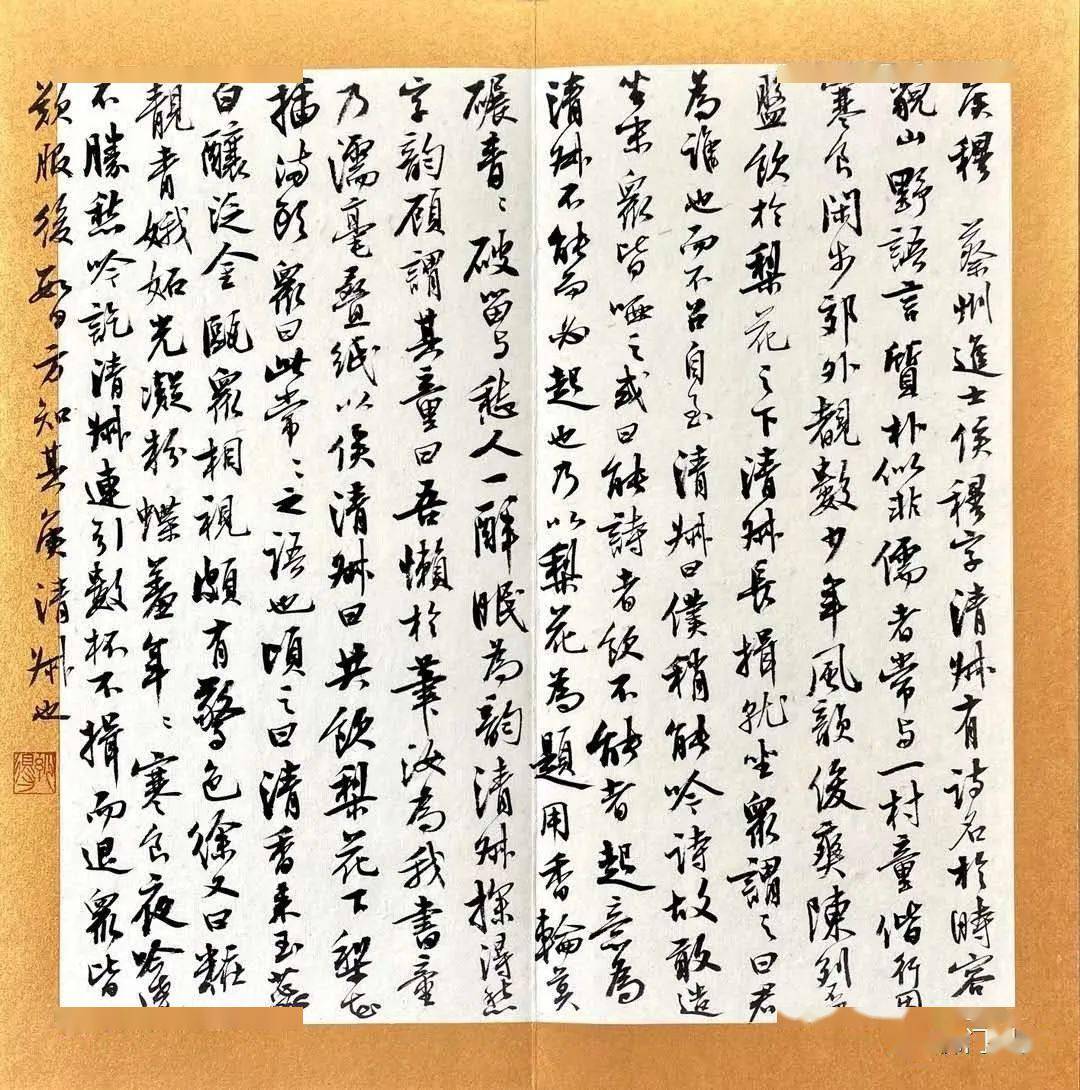 侯穆 蔡州進士侯穆字清叔有詩名於時容
貌山野語言質朴似非儒者常与一村童偕行因
寒食閑步郊外覩數少年風韻俊爽陳列
盤飲於梨花之下清叔長揖就坐衆謂之曰君
為誰也而不召自至清叔曰僕稍能吟詩故敢造
坐末衆皆哂之或曰能詩者飲不能者起意為
清叔不能而必起也乃以梨花為題用香輪莫
碾青〻破留与愁人一醉眠為韻清叔探得愁
字韻顧謂其童曰吾懶於筆汝為我書童
乃濡毫疊紙以俟清叔曰共飲梨花下梨花
插滿頭衆曰此常〻之語也頃之曰清香來玉
白釀泛金甌衆相視頗有驚色徐又曰粧
靚青娥妬光凝粉蝶羞年〻寒食夜吟
不勝愁吟訖清叔連引數杯不揖而退衆皆
歎服後數日方知其侯清叔也